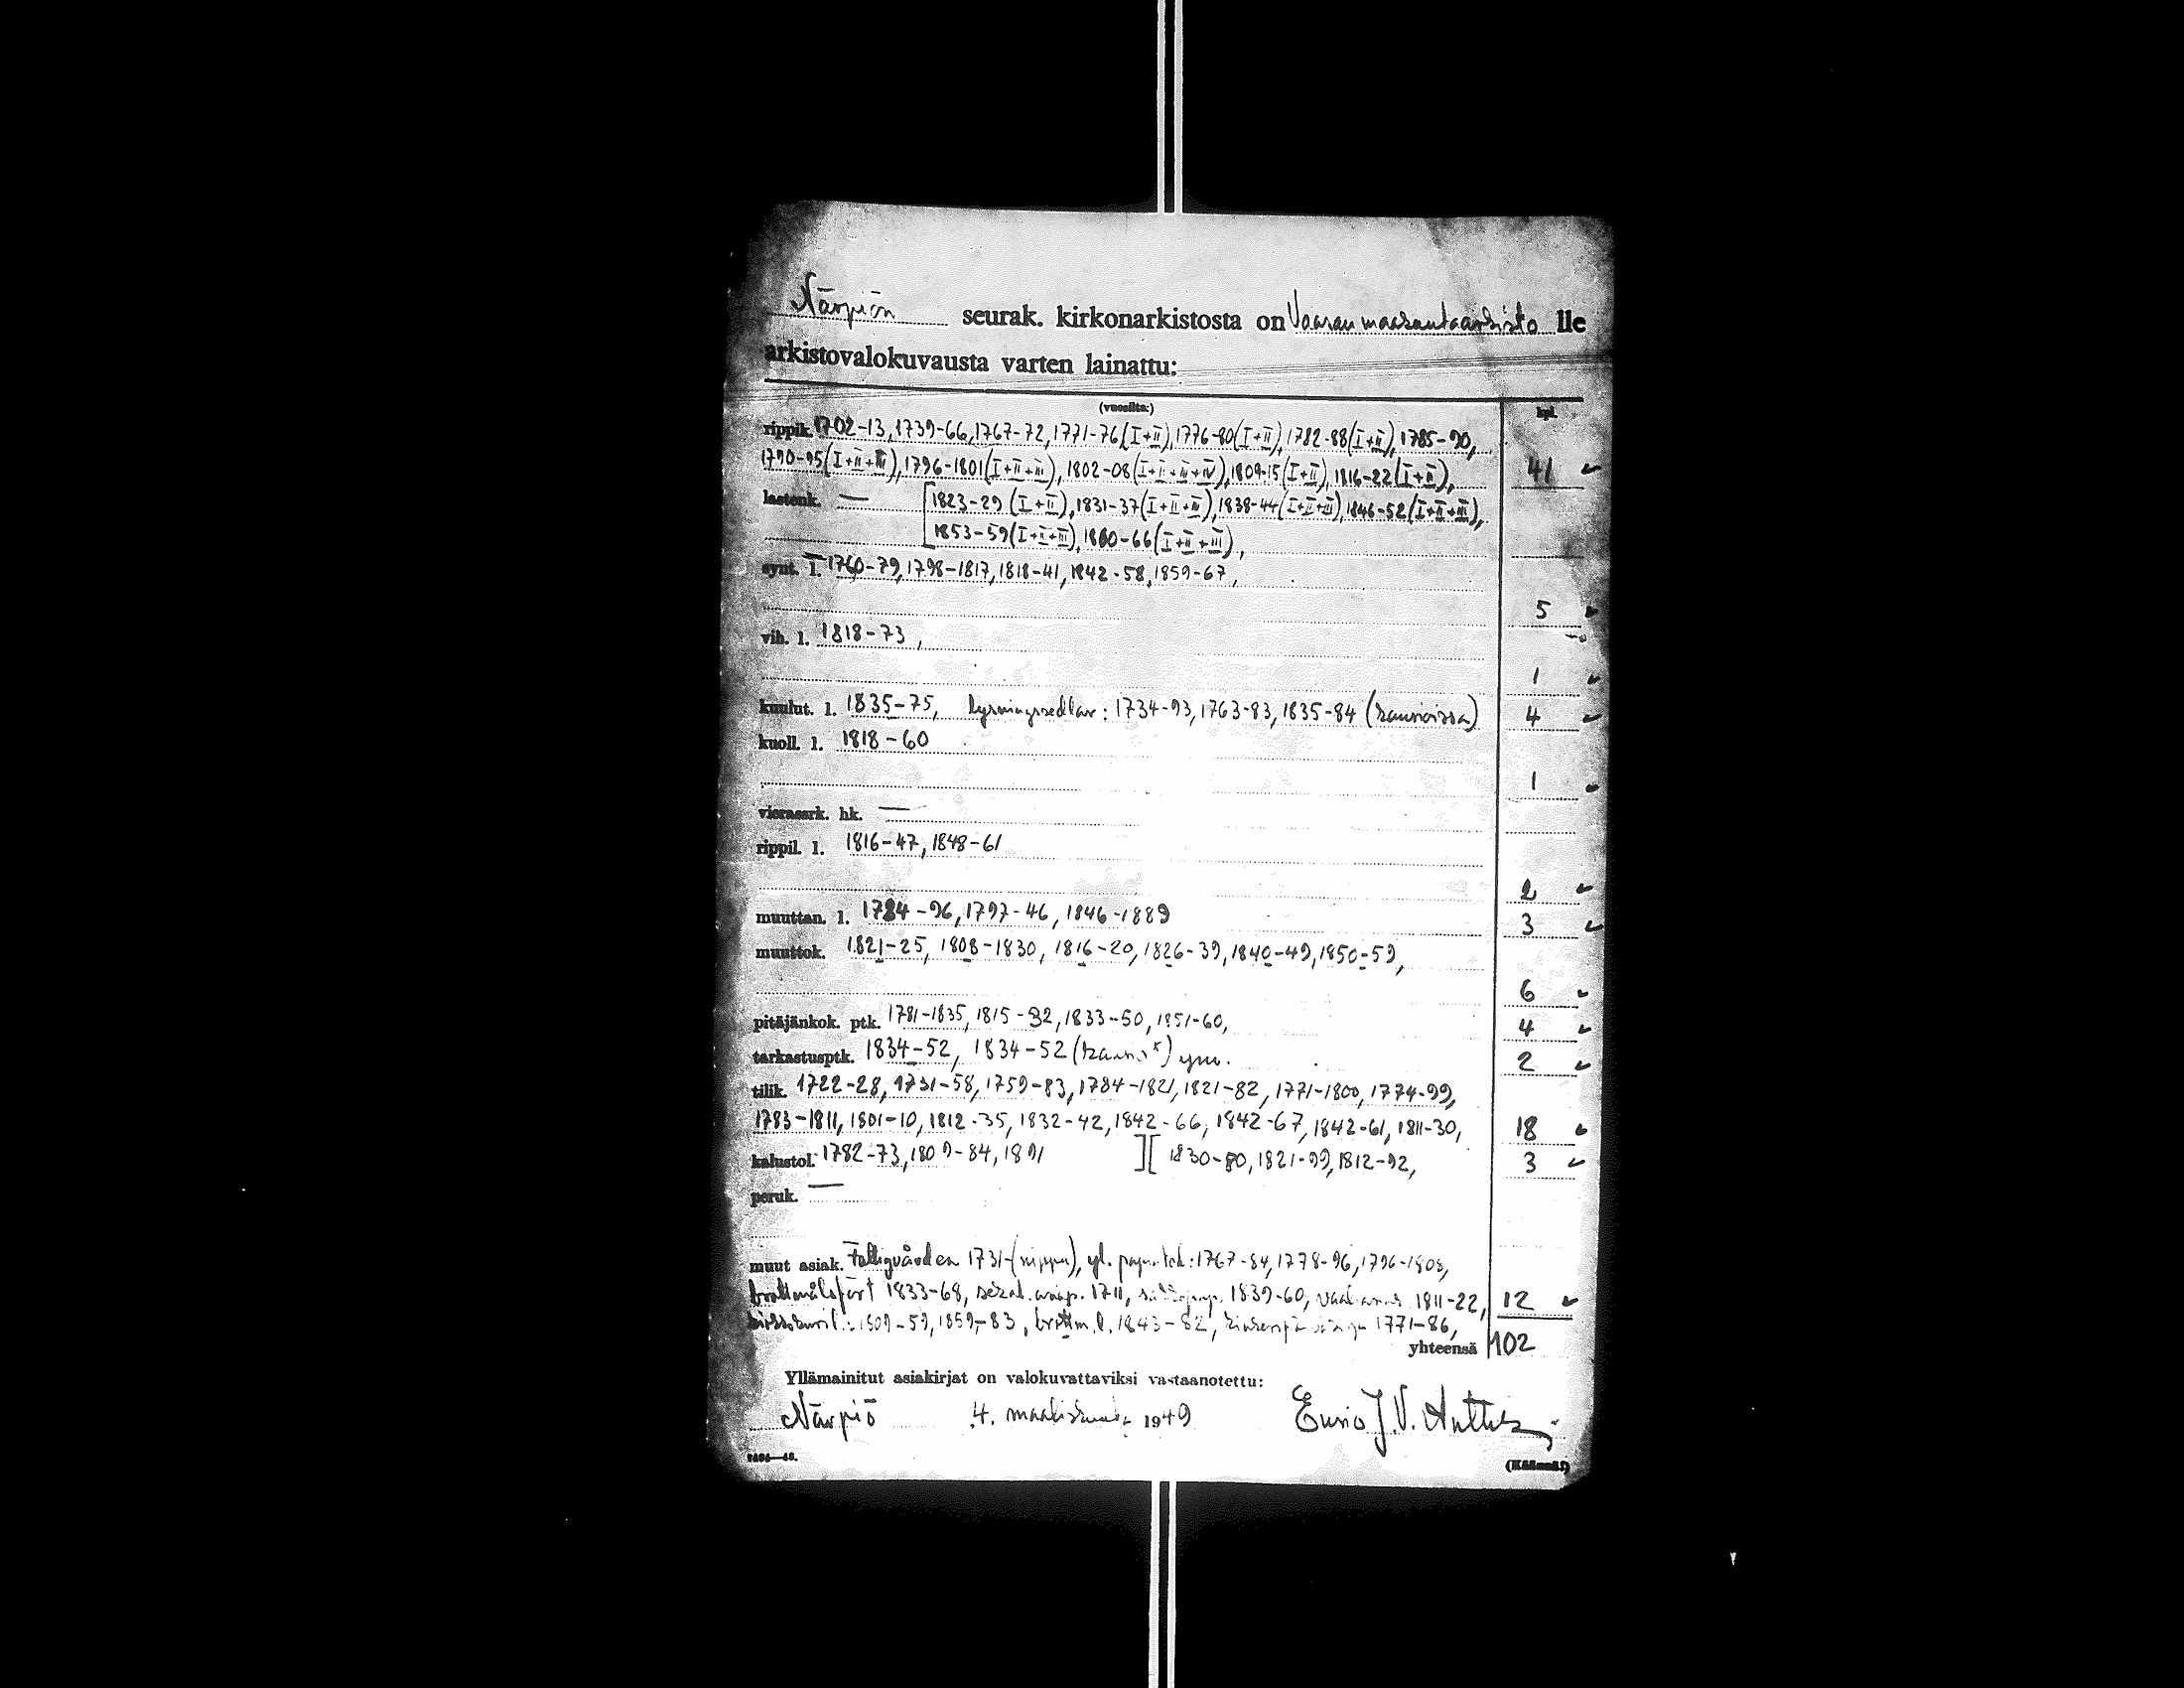 Närpiön seurak. kirkonarkistosta on Vaasan maakuntaarkisto lle
arkistovalokuvausta varten lainattu:
(vuosilta:) kpl.
rippik. 1702-13, 1739-66, 1767-72, 1771-76 (I+II), 1776-80 (I+II), 1782-88 (I+II), 1785-90,
1790-95 (I+II+III), 1796-1801 (I+II+III), 1802-08 (I+II+III+IV), 1809-15 (I+II), 1816-22 (I+II), 41
lastenk. — [1823-29 (I+II), 1831-37 (I+II+III), 1838-44 (I+II+III), 1846-52 (I+II+III),
1853-59 (I+II+III), 1860-66 (I+II+III),
synt. l. 1760-79, 1798-1817, 1818-41, 1842-58, 1859-67,
5
vih. l. 1818-73,
1
kuulut. l. 1835-75, lysningssedlar: 1734-93, 1763-83, 1835-84 (kansioissa) 4
kuoll. l. 1818-60
1
vierasark. hk. —
rippil. l. 1816-47, 1848-61
2
muuttan. l. 1784-96, 1797-46, 1846-1889 3
muuttok. 1821-25, 1808-1830, 1816-20, 1826-39, 1840-49, 1850-59,
6
pitäjänkok. ptk. 1781-1835, 1815-32, 1833-50, 1851-60, 4
tarkastusptk. 1834-52, 1834-52 ym. 2
tilik. 1722-28, 1731-58, 1759-83, 1784-1821, 1821-82, 1771-1800, 1774-99,
1783-1811, 1801-10, 1812-35, 1832-42, 1842-66, 1842-67, 1842-61, 1811-30, 18
kalustol. 1782-73, 1809-84, 1891 ][ 1830-80, 1821-99, 1812-92, 3
peruk. —
muut asiak. Fattigvården 1731- (nippu), yl. 1767-84, 1778-96, 1796-1808,
1833-68, 1711, 1839-60, 1811-22, 12
1809-59, 1859-83, 1843-82, 1771-86,
yhteensä 102
Yllämainitut asiakirjat on valokuvattaviksi vastaanotettu:
Närpiö 4. maaliskuuta 1949 J.V.
(Käännä!)